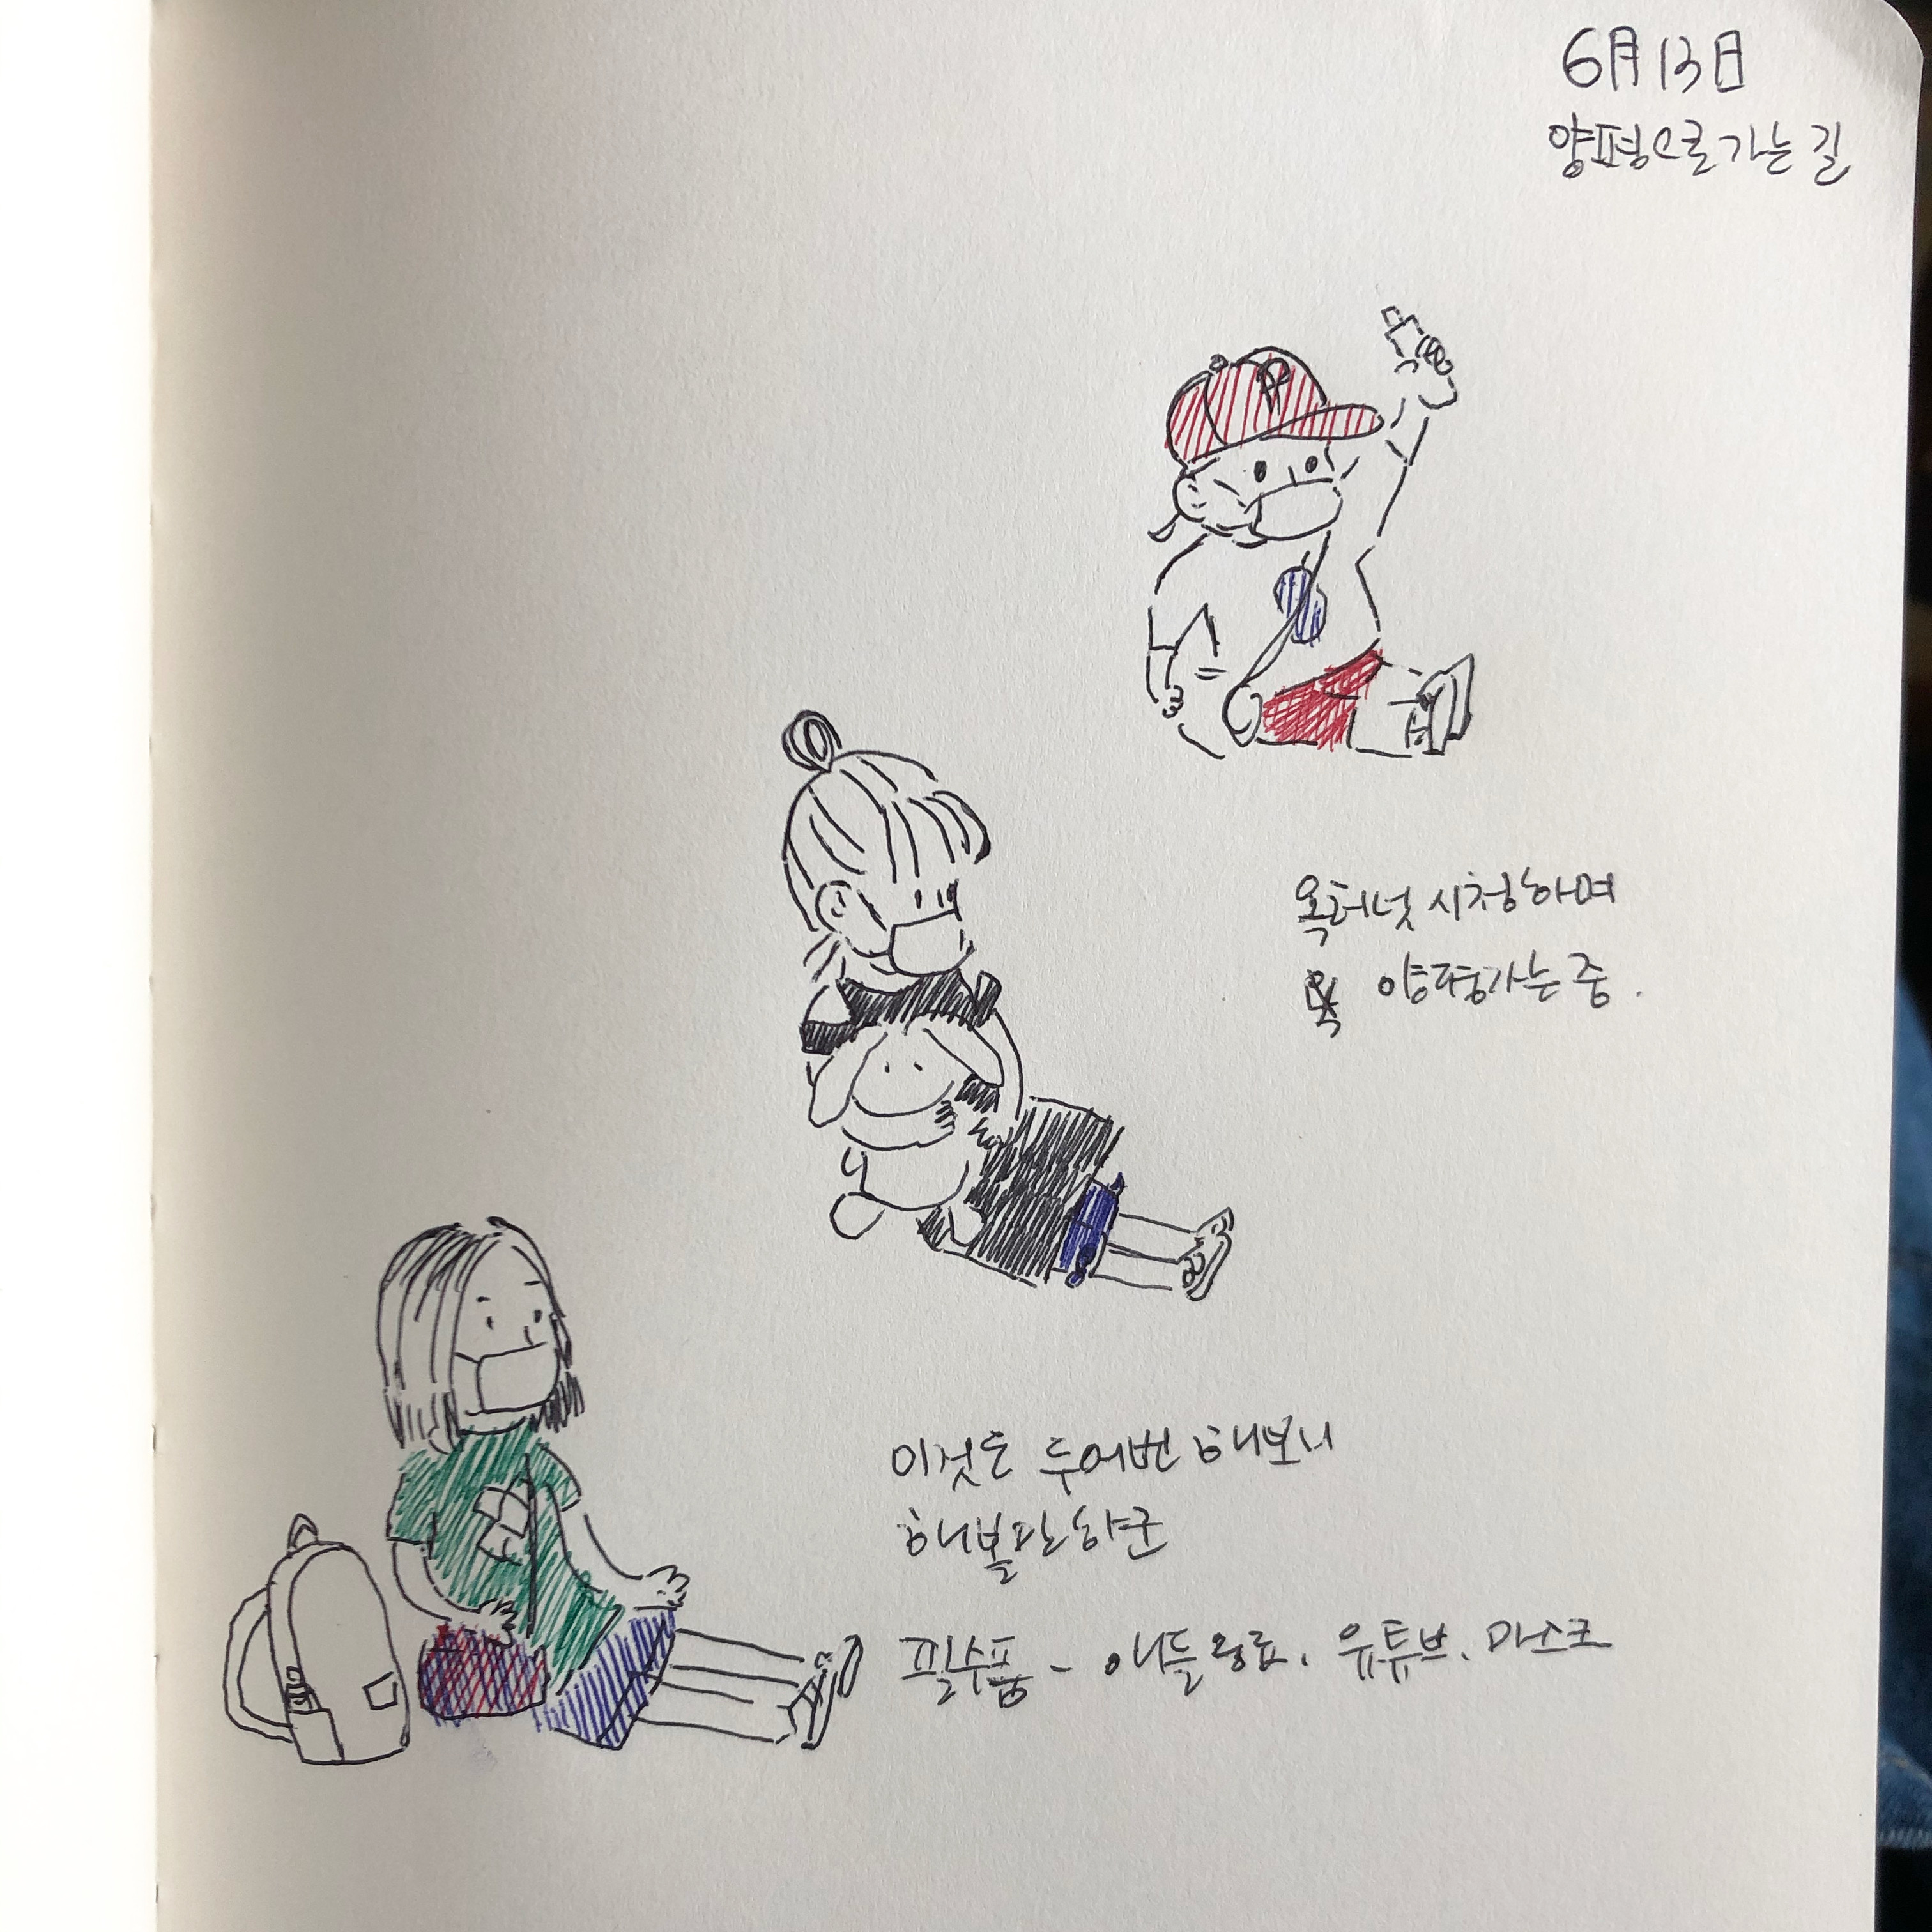 6月13日
양평으로가는길
P
옥터넛 시청하며
양평가는중.
이것도 두어번 해보니
해볼만하군
필수품 - 애들음료. 유튜브. 마스크